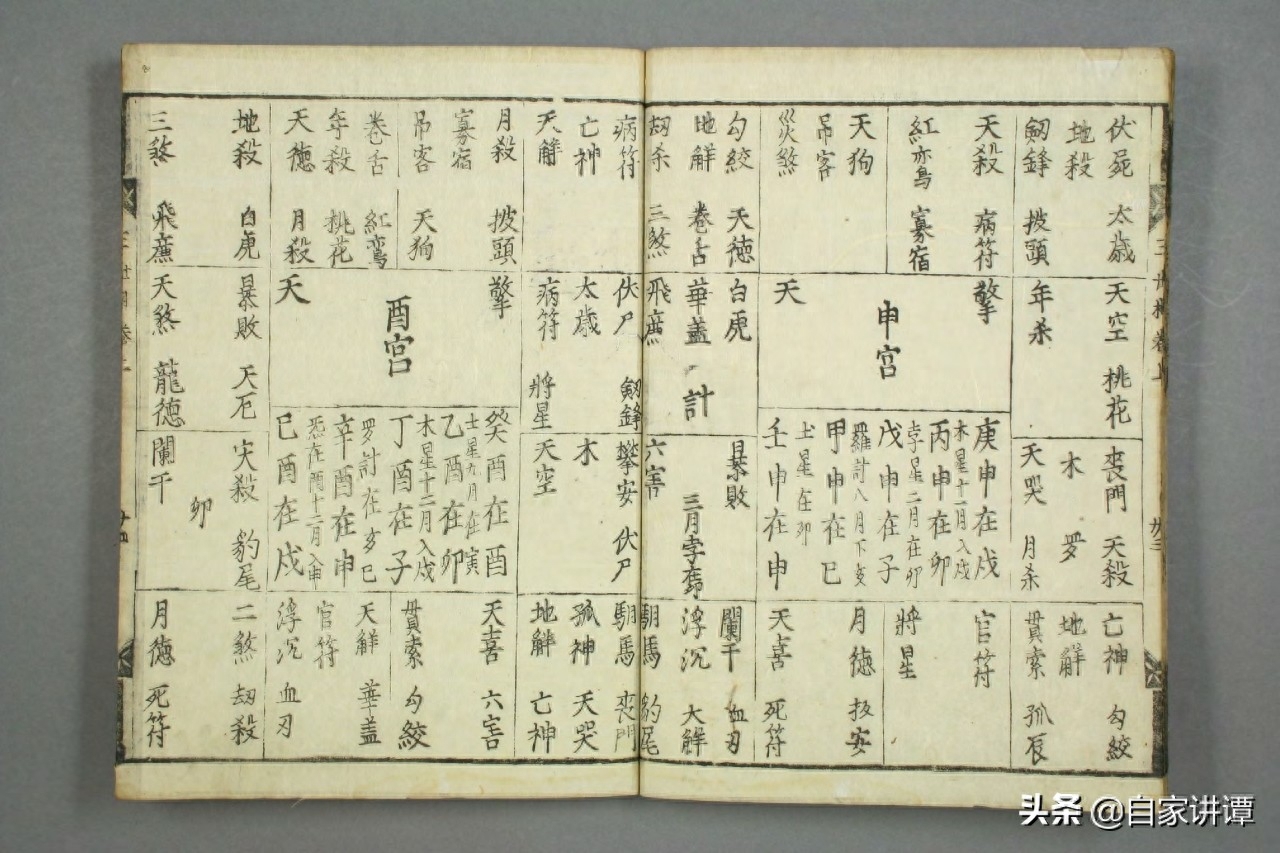 伏屍 太歲
地殺
劒鋒 披頭
天殺 病符
紅鸞 寡宿
天狗
吊客
災煞
勾絞 天德
地解 卷舌
刼杀 三煞
天空 桃花
年杀
擎
申宮
天
白虎
華蓋
飛廉
計
庚申在戌
木星十二月入戌
丙申在卯
孛星二月在卯
戊申在子
羅計八月下亥
甲申在巳
土星在卯
壬申在申
喪門 天殺
木 罗
天哭 月杀
暴敗
三月孛
六害
亡神 勾絞
地解
貫索 孤辰
官符
將星
月德 扳安
天喜 死符
闌干 血刃
浮沉 大解
馹馬 豹尾
病符
亡神
天解
月殺 披頭
寡宿
吊客 天狗
卷舌 紅鸞
年殺 桃花
天德 月殺
地殺 白虎
三煞 飛廉
伏尸 劒鋒
太歲
病符 將星
擎
酉宮
天
暴敗 天厄
天煞 龍德
攀安 伏尸
木
天空
癸酉在酉
土星九月在寅
乙酉在卯
木星十二月入戌
丁酉在子
罗計在亥巳
辛酉在申
炁在酉十二月入申
巳酉在戌
灾殺 豹尾
卯
闌干
馹馬 喪門
孤神 天哭
地解 亡神
天喜 六害
貫索 勾絞
天解 華蓋
官符
浮沉 血刃
二煞 刼殺
月德 死符
头条 @自家讲谭